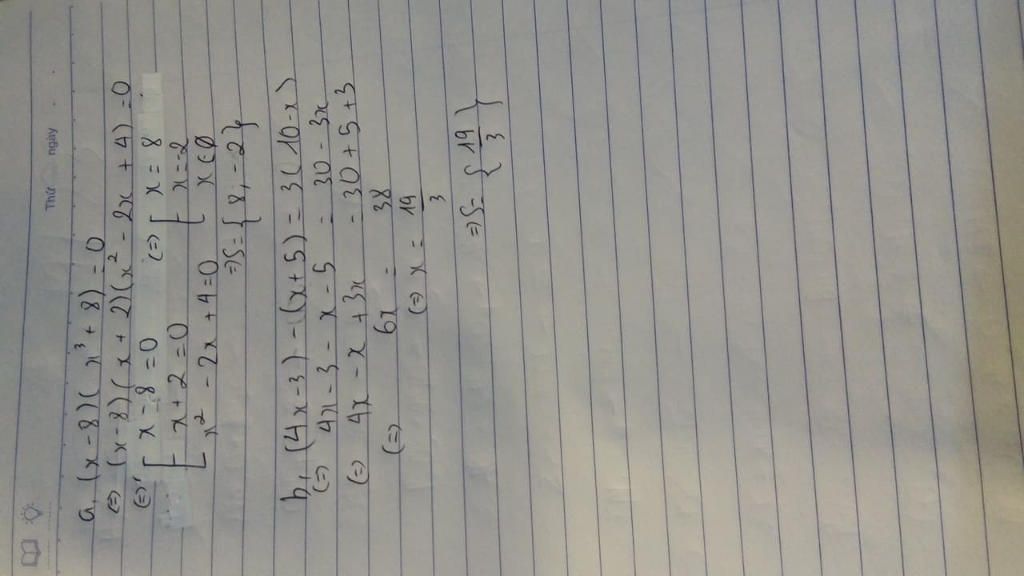 Thứ ngày
a, (x-8)(x³+8)=0
(=) (x-8)(x+2)(x²-2x+4)=0
(=) [ x-8=0 (=) [ x=8
[ x+2=0 [ x=-2
x²-2x+4=0 [ x∈∅
=>S={8;-2}
b, (4x-3)-(x+5)=3(10-x)
(=) 4x-3-x-5=30-3x
(=) 4x-x+3x=30+5+3
(=) 6x=38
(=) x=19/3
=>S={19/3}